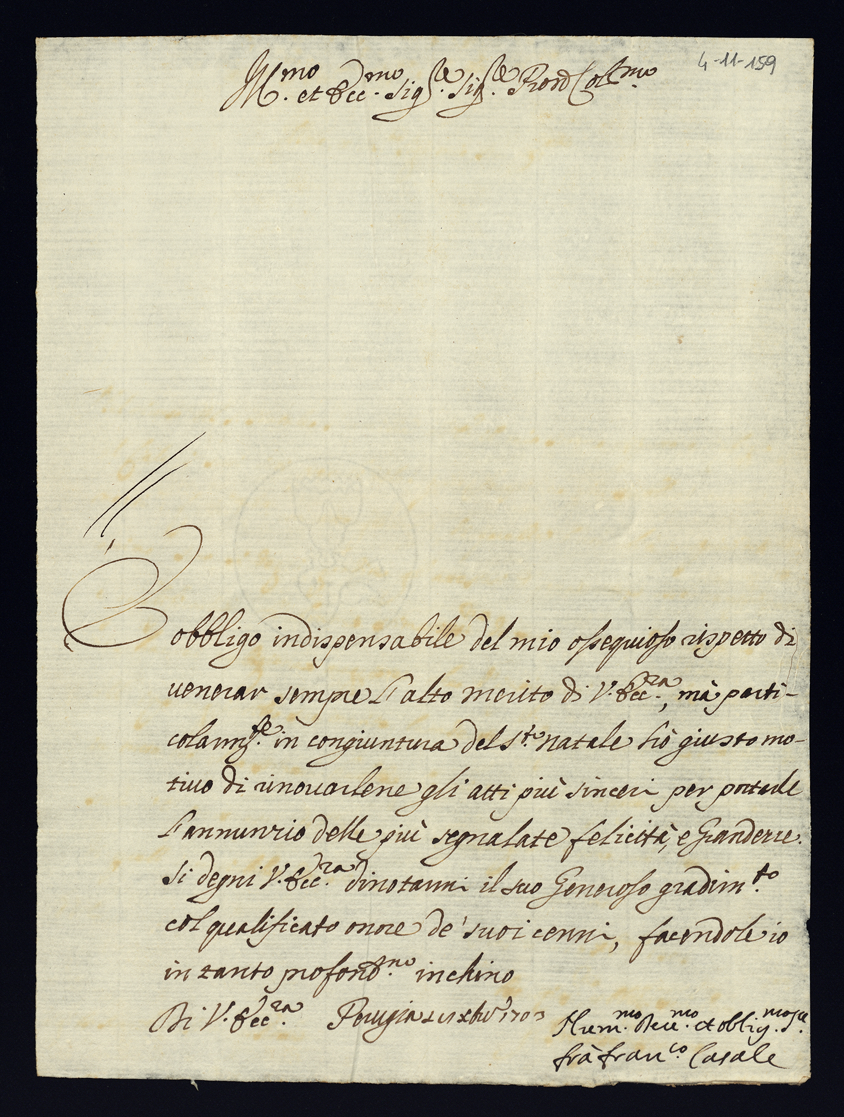 4-11-159
Ill.mo et Ecc.mo Sig.re Sig.re Pron Col.mo
È obbligo indispensabile del mio ossequioso rispetto di
venerar sempre l'alto merito di V. Ecc.za, mà parti-
colarm.te in congiuntura del S.to Natale hò giusto mo-
tivo di rinovarlene gli atti più sinceri per portarle
l'annunzio delle più segnalate felicità, e grandezze.
Si degni V. Ecc.za dinotarmi il suo Generoso gradim.to
col qualificato onore de' suoi cenni, facendole io
in tanto profond.mo inchino
Di V. Ecc.za Perugia Xbre 1703
Hum.mo Dev.mo et oblig.mo S.re
frà Fran.co Casale